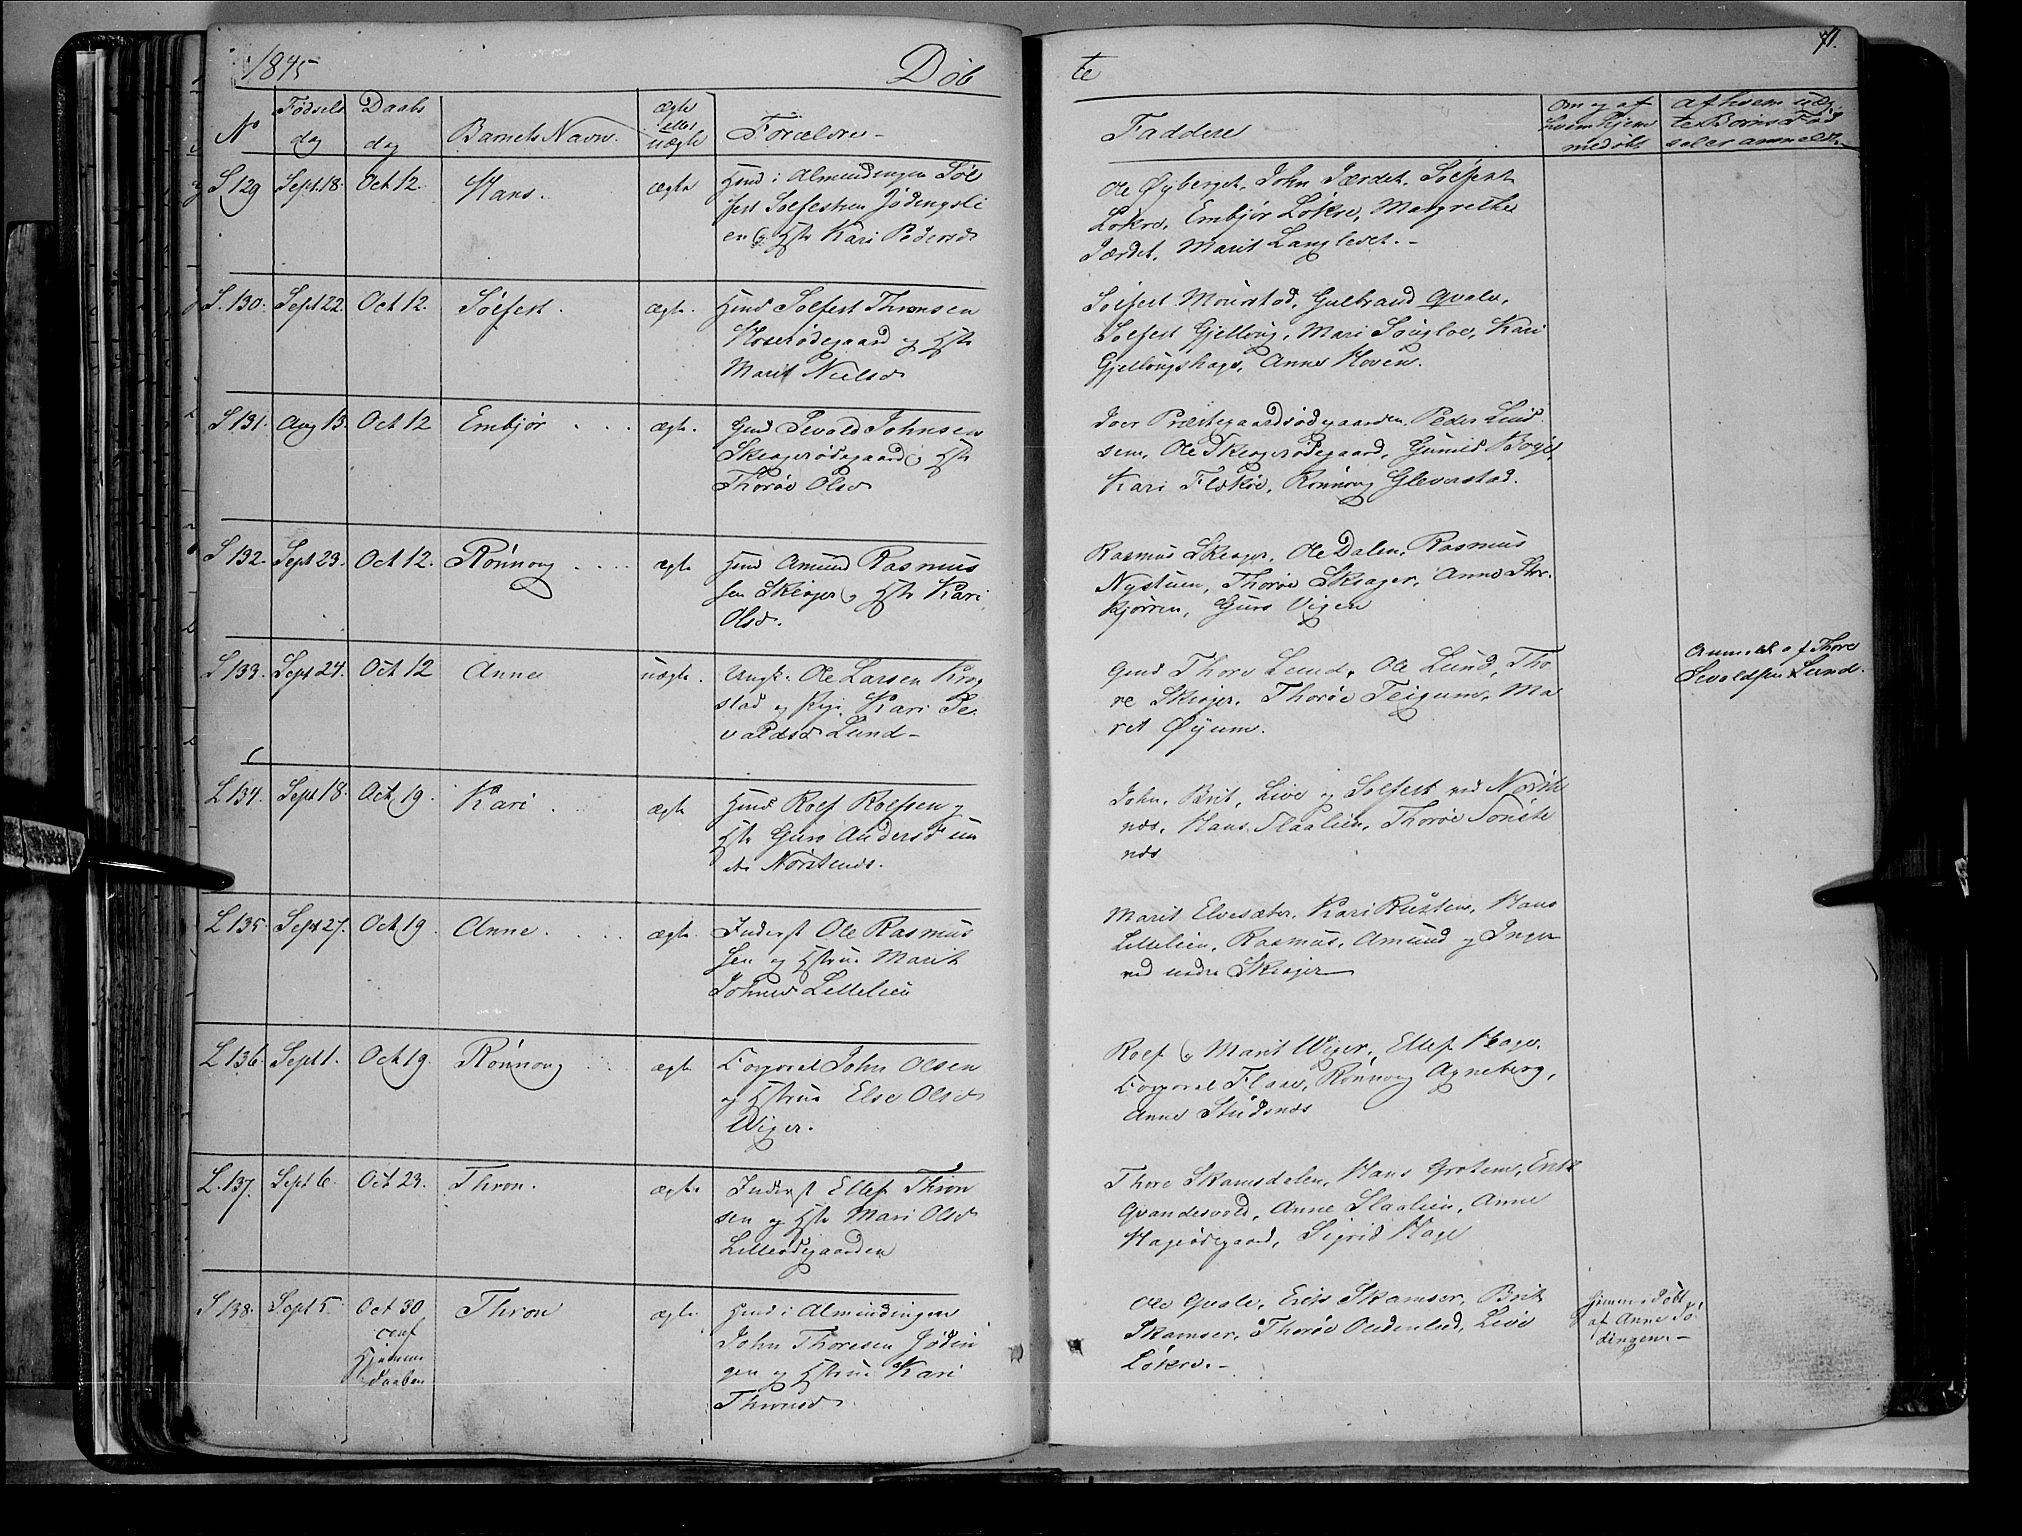 1845
Døb
te
71.
No
Fødsels dag
Daabs dag
Barnets Navn.
ægte eller uægte
Forældre
Faddere
Om og af hvem hjemmedøbt
af hvem uægte Børns Fødseler anmeldt.
S 129
Sept 18.
Oct 12.
Hans.
ægte
Hmd i Almindingen Søl
fest Solfestsen Jødingsli
en og Hstr Kari Pedersd
Ole Øyberget, John Jærdet, Solfest
Løkre, Embjør Løkre, Margrethe
Jærdet, Marit Langlevet.-
S. 130.
Sept 22.
Oct 12.
Solfest.
ægte.
Hmd Solfest Thronsen
Moserødegaard og Hstr
Marit Nielsd
Solfest Mourstad, Gulbrand Qvale,
Solfest Gjelling, Mari Sougloe, Kari
Gjellingshage, Anne Hoven.
S 131.
Aug 13.
Oct 12
Embjør
ægte.
Gmd Sevald Johnsen
Skiagerødegaard og Hstr
Thorøe Olsd
Joer Præstegaardsødegaarden, Peder Lund
sem, Ole Skiagerødegaard, Gunild
Kari Flekøe, Rønnoug Gleverstad.
S 132.
Sept 23.
Oct 12.
Rønnoug
ægte
Hmd Amund Rasmus
sen Skiager og Hstr Kari
Olsd.
Rasmus Skiager, Ole Dalen, Rasmus
Nystuen, Thorøe Skiager, Anne Stor
kjørren, Guro Vigen
S 133.
Sept 24.
Oct 12
Anne
uægte.
Ungk. Ole Larsen Krog
stad og Pige Kari Se
valdsd Lund-
Gmd Thore Lund, Ole Lund, Tho
re Skiager, Thorøe Teigum, Ma
ret Øyum.
Anmeldt af Thore
Sevaldsen Lund.
L 134.
Sept 18.
Oct 19.
Kari
ægte
Hmd Rolf Rolfsen og
Hstr Guro Andersd un
der Norstenæs.
John, Brit, Live og Solfest ved Norste
næs, Hans Slaalien, Thorøe Sønste
næs
L 135
Sept 27.
Oct 19.
Anne.
ægte.
Inderst Ole Rasmus
sen og Hstrue Marit
Johnsd Lillelien
Marit Elvesæter, Kari Rusten, Hans
Lillelien, Rasmus, Amund og Inger
ved nedre Skiager
L 136.
Sept 1.
Oct 19.
Rønnoug
ægte
Corporal John Olsen
og Hstrue Else Olsd
Wiger.
Rolf og Marit Wiger, Ellef Hage,
Corporal Flaae, Rønnoug Agneberg,
Anne Studsnæs
L. 137.
Sept 6.
Oct 23.
Thron.
ægte
Inderst Ellef Thron
sen og Hstr Mari Olsd
Lilleødegaarden
Thore Skamsdalen, Hans Groten, Erik
Qvandesvold, Anne Slaalien, Anne
Hageødegaard, Sigrid Hage
S 138.
Sept 5.
Oct 30
conf
Hjemme
daaben
Thron
ægte.
Hmd i Almindingen
John Thoresen Jødin
gen og Hstrue Kari
Thronsd
Ole Qvale, Erik Skamser, Brit
Skamser, Thorøe Andenlied, Live
Løkre.-
hjemmedøbt
af Anne Jø
dingen.-